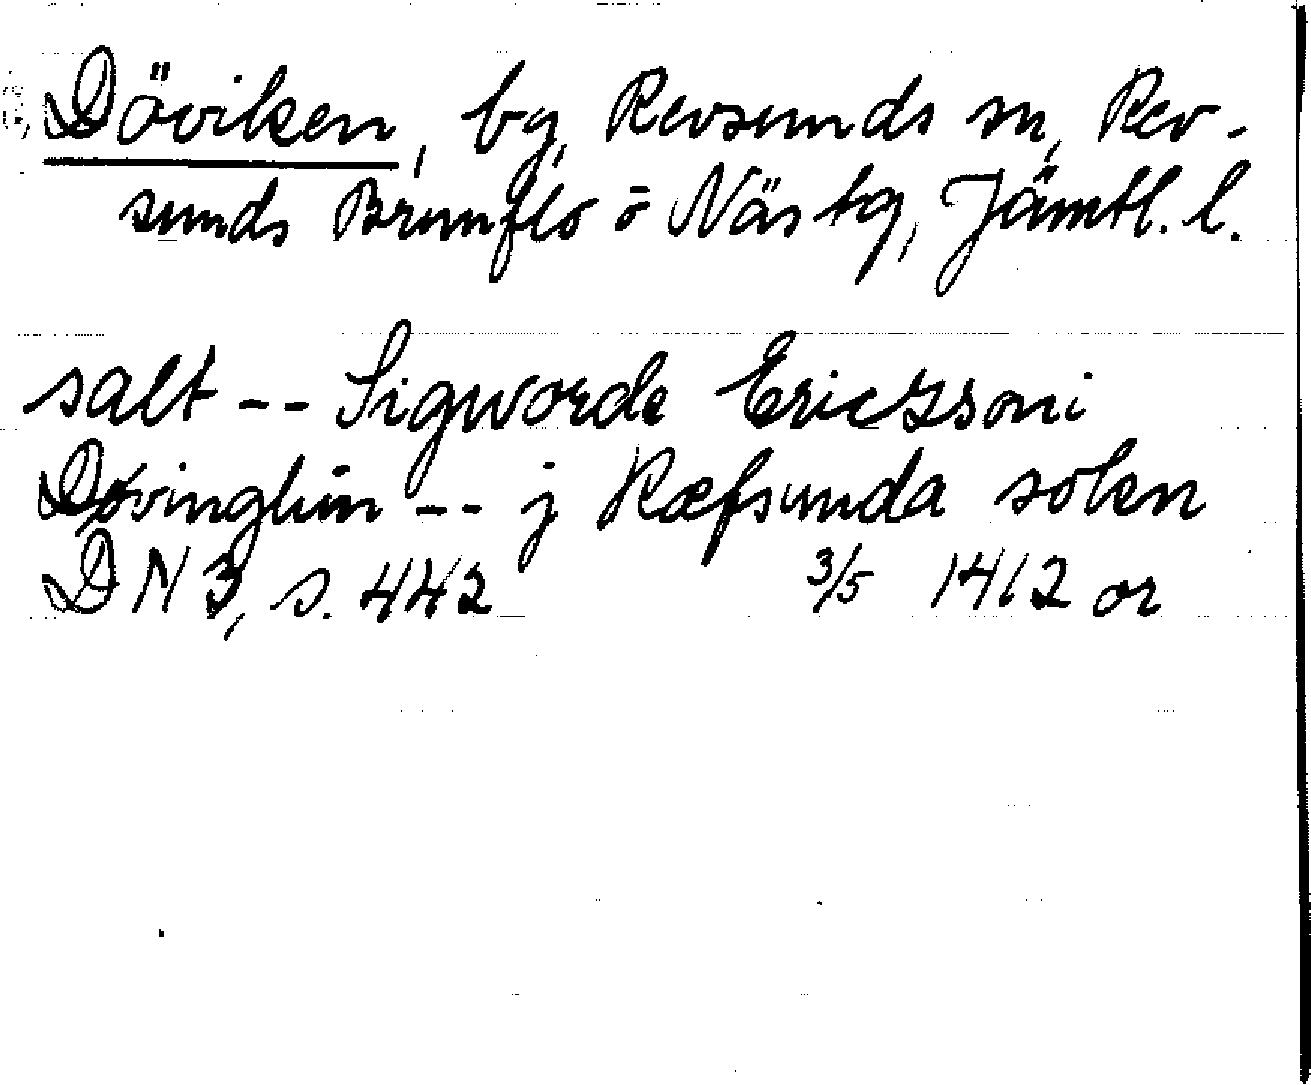 Döviken, by, Revsunds sn, Rev-
sunds Brunflo o Näs tg, Jämtl. l.
salt -- Sigworde Ericzsoni
Døvinghin -- j Ræfsunda soken
DN 3, s. 442 3/5 1412 or